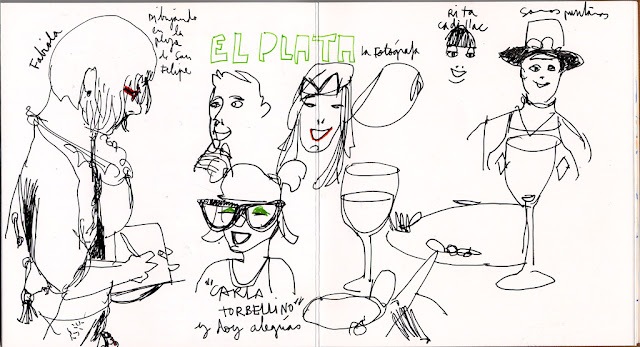 Fabiola
Dibujando
en la
plaza
de San
Felipe
EL PLATA
la fotógrafa
Rita
Cadillac
Somos
"CARLA
TORBELLINO"
y doy alegrías